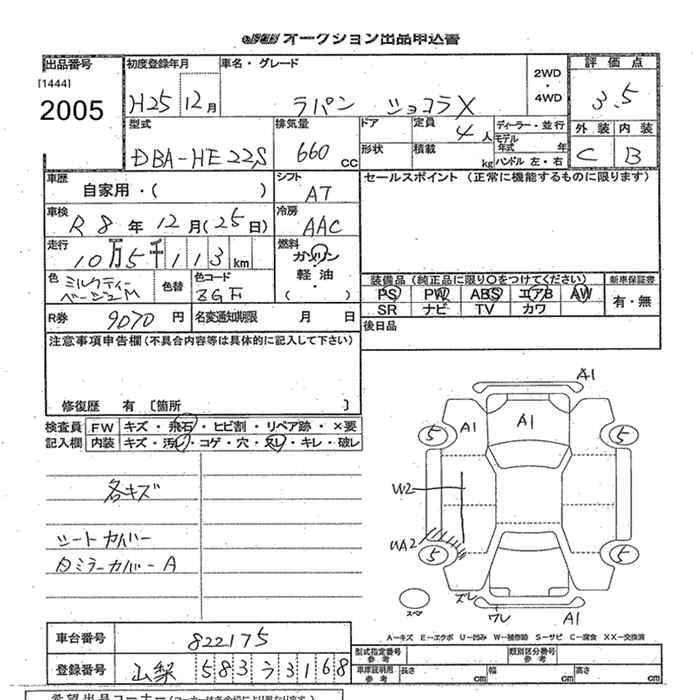 オークション出品申込書
出品番号 初度登録年月 車名・グレード 2WD・4WD 評価点
[1444]
2005 H25 12月 ラパン ショコラX 3.5
型式 排気量 ドア 定員 4人 ディーラー・並行 外装 内装
DBA-HE22S 660cc 形状 積載 kg モデル年式 年 ハンドル 左・右 C B
車歴 シフト セールスポイント (正常に機能するものに限ります)
自家用・( ) AT
車検 冷房
R8年12月(25日) AAC
走行 燃料
10万5千113km ガソリン・軽油・( )
色 ミルクティーベージュM 色替 色コード 装備品 (純正品に限り○をつけてください) 新車保証書
PS PW ABS エアB AW 有・無
SR ナビ TV カワ
R券 9070円 名変通知期限 月 日 後日品
注意事項申告欄(不具合内容等は具体的に記入して下さい)
修復歴 有 〔箇所 〕
検査員 FW キズ・飛石・ヒビ割・リペア跡・×要
記入欄 内装 キズ・汚レ・コゲ・穴・スレ・キレ・破レ
各キズ
シートカバー
タミラーカバーA
A1
A1 A1
5 5
W2
UA2
5 5
ズレ
スペア ワレ A1
A-キズ E-エクボ U-凹み W-補修跡 S-サビ C-腐食 XX-交換済
車台番号 822175
型式指定番号 参考 類別区分番号 参考
登録番号 山梨 583 う 3168
車庫証明用 参考 長さ cm 幅 cm 高さ cm
希望出品コーナー